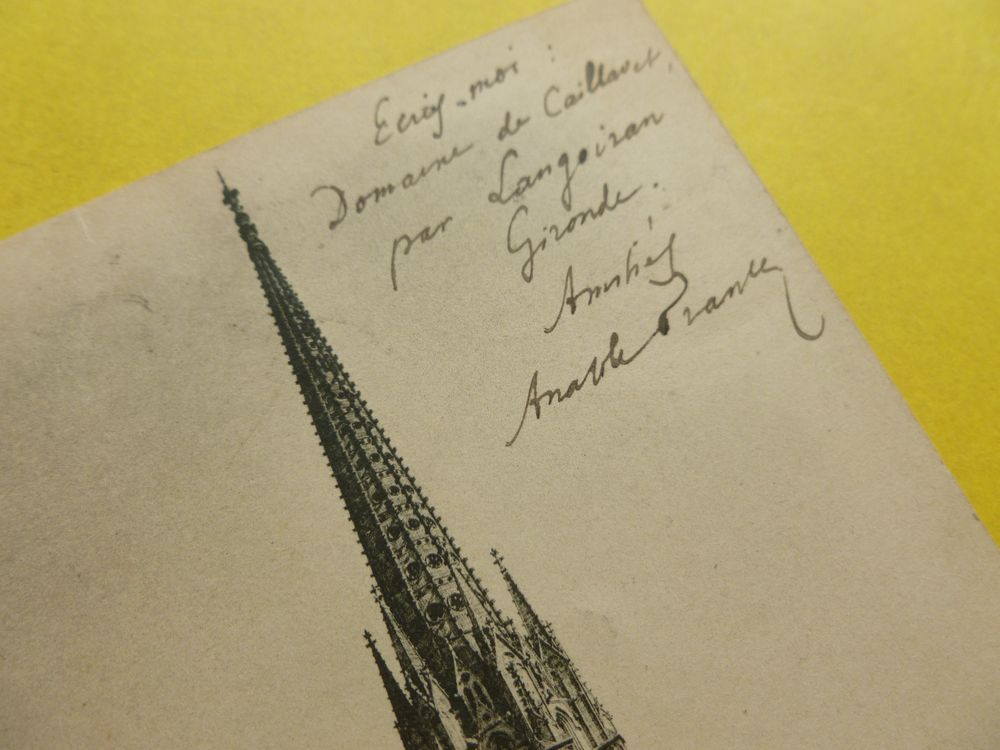 Ecrivez-moi :
Domaine de Caillavet,
par Langoiran
Gironde.
Amitiés
Anatole France